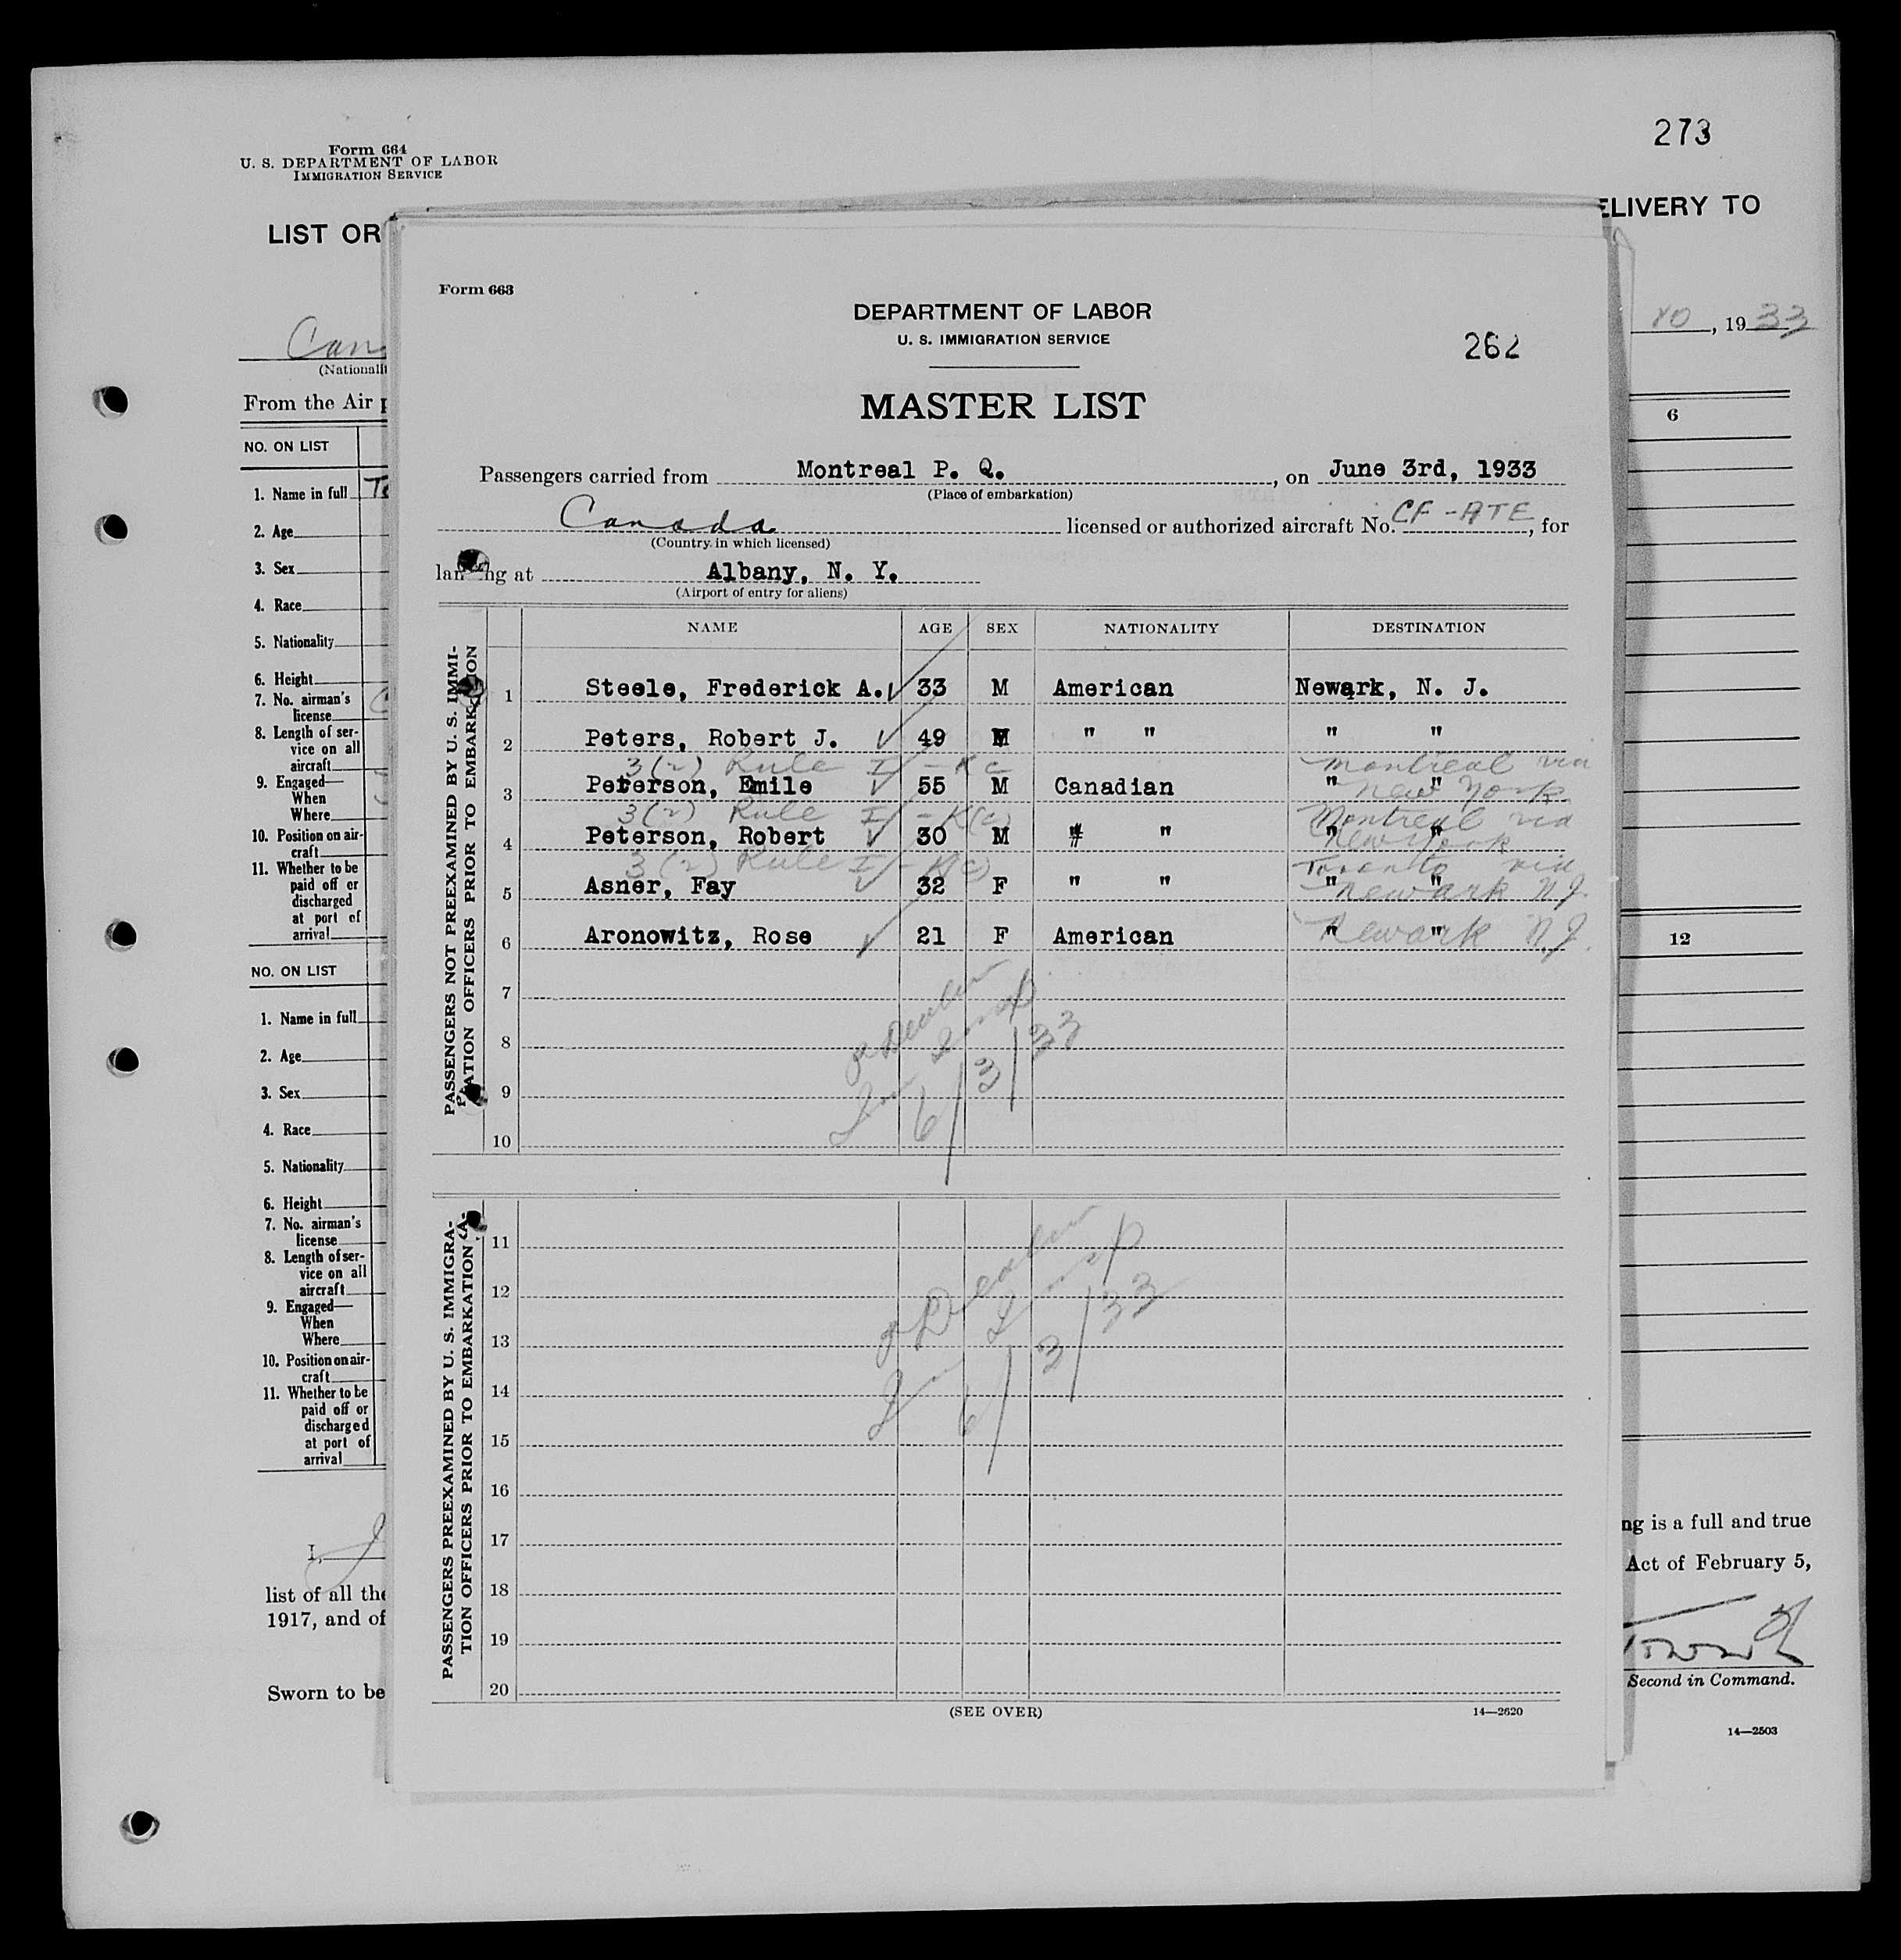 273
Form 664
U. S. DEPARTMENT OF LABOR
IMMIGRATION SERVICE
LIST OR
ELIVERY TO
Can
(Nationali
10, 1933
From the Air p
6
NO. ON LIST
1. Name in full
2. Age
3. Sex
4. Race
5. Nationality
6. Height
7. No. airman's
license
8. Length of ser-
vice on all
aircraft
9. Engaged—
When
Where
10. Position on air-
craft
11. Whether to be
paid off or
discharged
at port of
arrival
NO. ON LIST
12
1. Name in full
2. Age
3. Sex
4. Race
5. Nationality
6. Height
7. No. airman's
license
8. Length of ser-
vice on all
aircraft
9. Engaged—
When
Where
10. Position on air-
craft
11. Whether to be
paid off or
discharged
at port of
arrival
I,
ng is a full and true
list of all the
Act of February 5,
1917, and of
Sworn to be
Second in Command.
14—2503
Form 663
DEPARTMENT OF LABOR
U. S. IMMIGRATION SERVICE
262
MASTER LIST
Passengers carried from Montreal P. Q., on June 3rd, 1933
(Place of embarkation)
Canada licensed or authorized aircraft No. CF-ATE, for
(Country in which licensed)
landing at Albany, N. Y.
(Airport of entry for aliens)
PASSENGERS NOT PREEXAMINED BY U. S. IMMI-
GRATION OFFICERS PRIOR TO EMBARKATION
NAME AGE SEX NATIONALITY DESTINATION
1 Steele, Frederick A. 33 M American Newark, N. J.
2 Peters, Robert J. 49 M " " " "
3(2) Rule I - K c Montreal via
3 Peterson, Emile 55 M Canadian " " New York
3(2) Rule I - K(c) Montreal via
4 Peterson, Robert 30 M " " " " New York
3(2) Rule I - K(c) Toronto via
5 Asner, Fay 32 F " " " " Newark N.J.
6 Aronowitz, Rose 21 F American " " Newark N.J.
7
8
9
10
6/3/33
PASSENGERS PREEXAMINED BY U. S. IMMIGRA-
TION OFFICERS PRIOR TO EMBARKATION
11
12
13
14
15
16
17
18
19
20
6/3/33
(SEE OVER)
14—2620